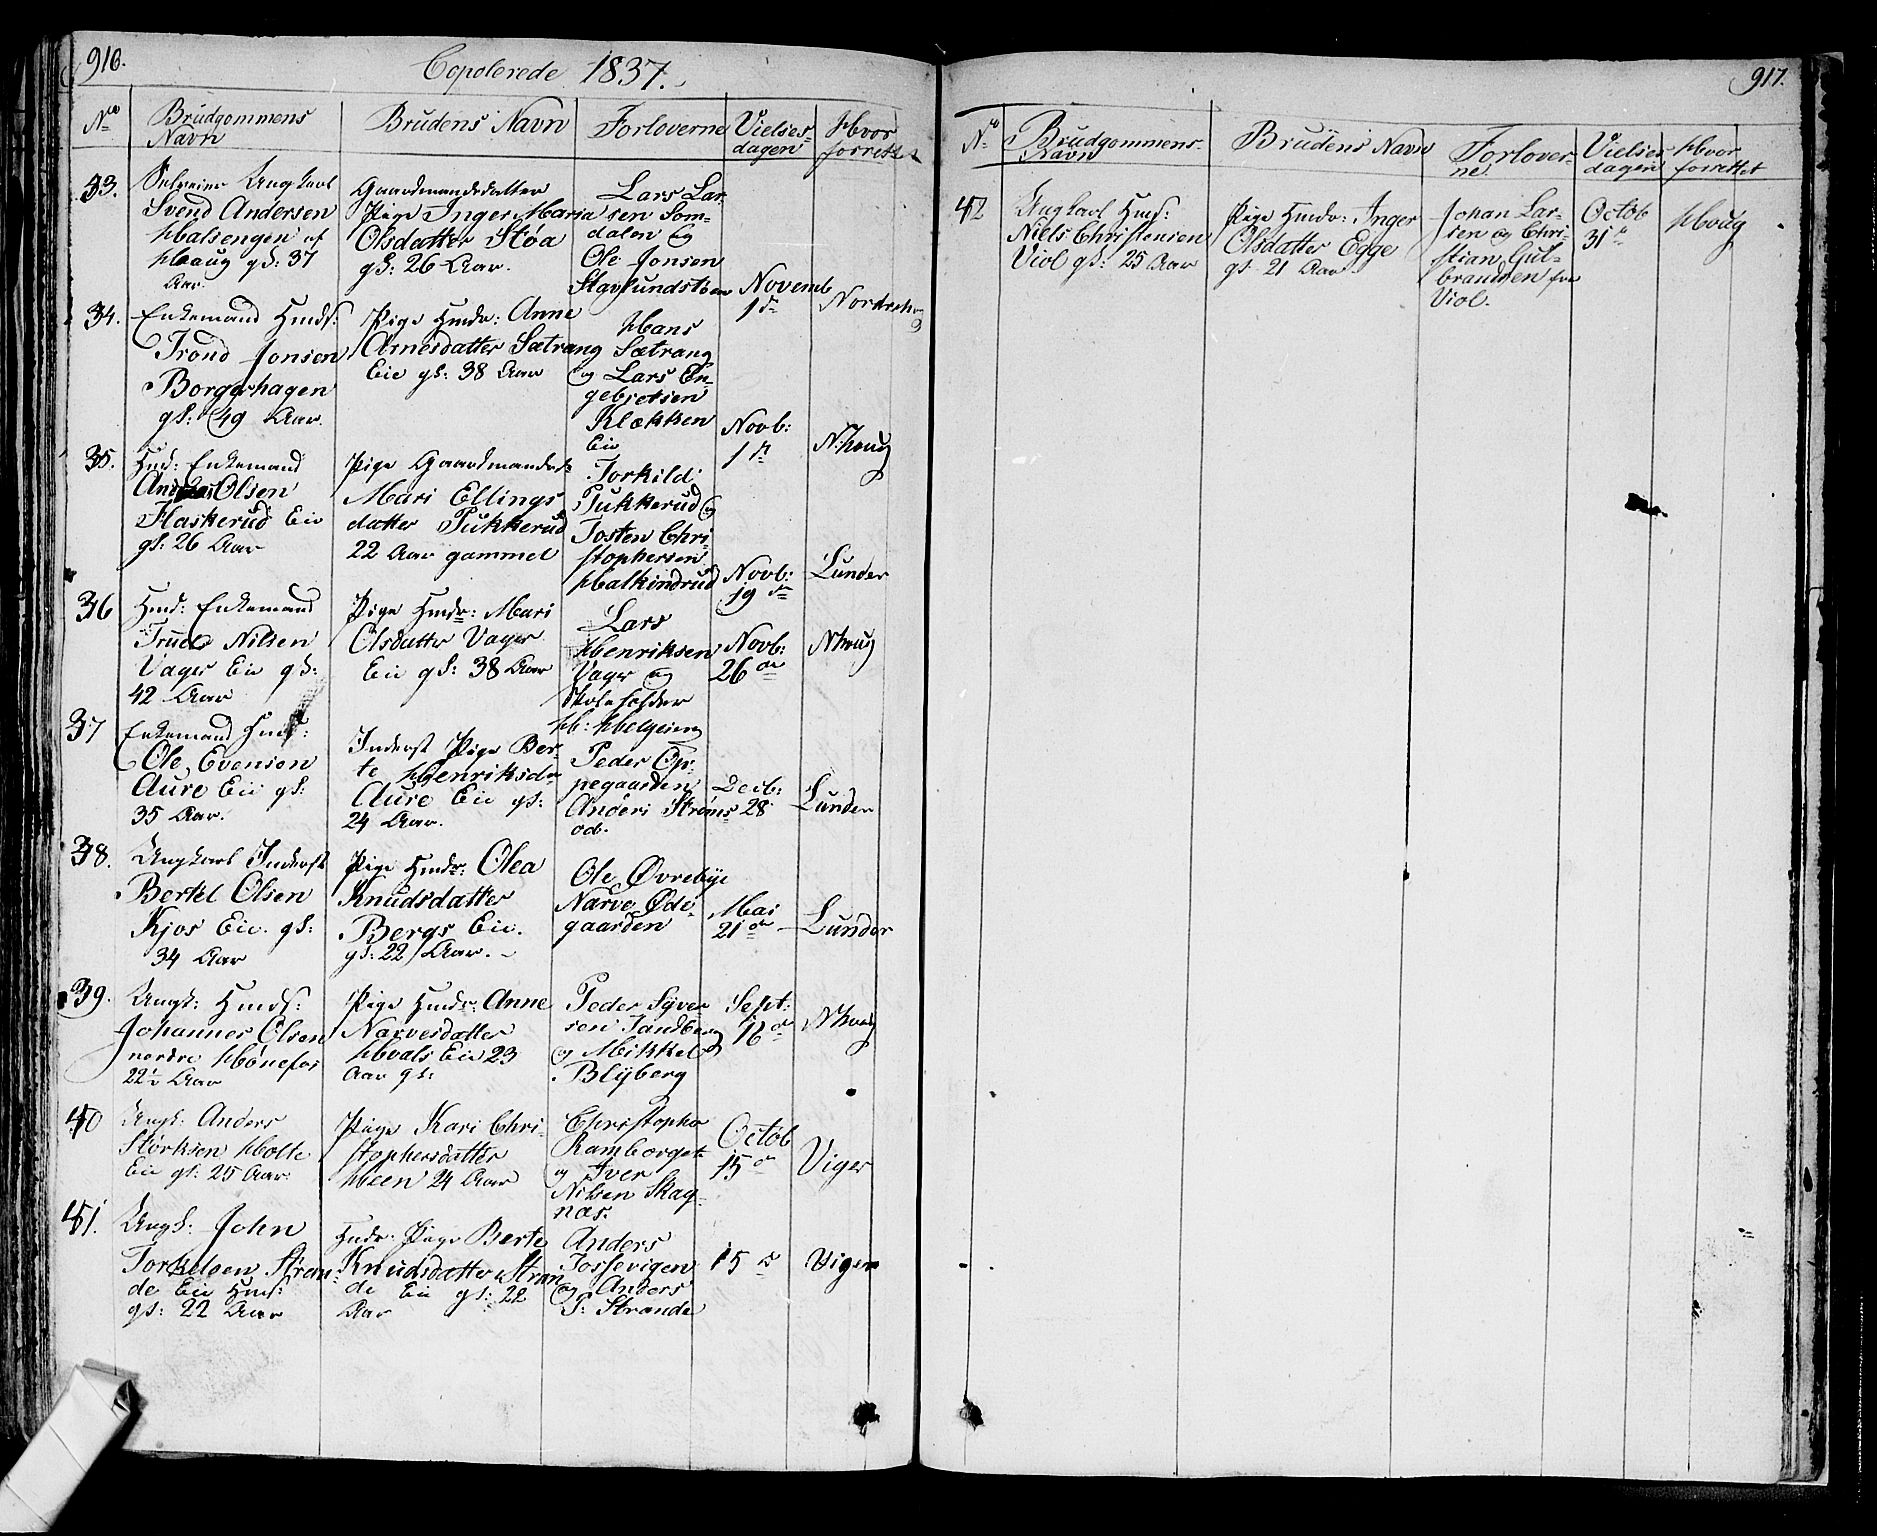 916.
Copolerede 1837.
No
Brudgommens Navn
Brudens Navn
Forloverne
Vielses-
dagen
Hvor
forrettet
33.
Selveier Ungkarl
Svend Andersen
Halsengen af
Haug gl: 37
Aar.
Gaardmandsdatter
Pige Inger Maria
Olsdatter Støa
gl: 26 Aar.
Lars Lar-
sen Som-
dalen og
Ole Jonsen
Stavlundstøen
Novemb
1ste
Norderhov
34.
Enkemand Hmds:
Trond Jonsen
Borgerhagen
gl: 49 Aar.
Pige Hmdr: Anne
Arnesdatter Sætrang
Eie gl: 38 Aar
Hans
Sætrang
og Lars En-
gebretsen
Klækken
Eie
Novb:
1ste
N:houg
35.
Hmd: Enkemand
Olsen
Flaskerud Eie
gl: 26 Aar
Pige Gaardmandsd:
Mari Ellings
datter Pukkerud
22 Aar gammel
Torkild
Pukkerud og
Tosten Chri-
stophersen
Halkindrud
Novb:
19de
Lunder
36
Hmd: Enkemand
Truls Nilsen
Vager Eie gl:
42 Aar
Pige Hmdr: Mari
Olsdatter Vager
Eie gl: 38 Aar
Lars
Henriksen
Vager og
Skoleholder
H: Helgesen
Novb:
26de
Nhoug
37
Enkemand Hmds:
Ole Evensen
Aure Eie gl:
35 Aar.
Inderst Pige Ber-
te Henriksdr
Aure Eie gl:
24 Aar.
Peder Op-
pegaarden
Anders Strøms-
od.
Decb:
28
Lunder
38.
Ungkarl Inderst
Bertel Olsen
Kjos Eie. gl:
34 Aar
Pige Hmdr: Olea
Knudsdatter
Bergs Eie.
gl: 22 Aar.
Ole Øvrebye
Narve Øde-
gaarden
Mai
21de
Lunder
39.
Ungk: Hmds:
Johannes Olsen
nordre Hønefos
22½ Aar
Pige Hmdr: Anne
Narvesdatter
Hvals Eie 23
Aar gl:
Peder Syver
sen Tandberg
og Mikkel
Blyberg
Sept:
16de
Nhoug
40
Ungk: Anders
Størksen Holte
Eie gl: 25 Aar.
Pige Kari Chri-
stophersdatter
Heen 24 Aar
Christopher
Ramborget
og Iver
Nilsen Skag-
næs.
Octob
15de
Viger
41.
Ungk: John
Torkelsen Stran-
de Eie Hmds:
gl: 22 Aar
Hmdr: Pige Berte
Knudsdatter Stran
de Eie gl: 22
Aar
Anders
Tossevigen
og Anders
P: Strande
15de
Viger
917.
No
Brudgommens
Navn
Brudens Navn
Forlover-
ne
Vielses
dagen
Hvor
forrettet
42
Ungkarl Hmds:
Niels Christensen
Viol gl: 25 Aar
Pige Hmdr: Inger
Olsdatter Egge
gl 21 Aar
Johan Lar-
sen og Chri-
stian Gul-
brandsen fra
Viol.
Octob
31te
Houg